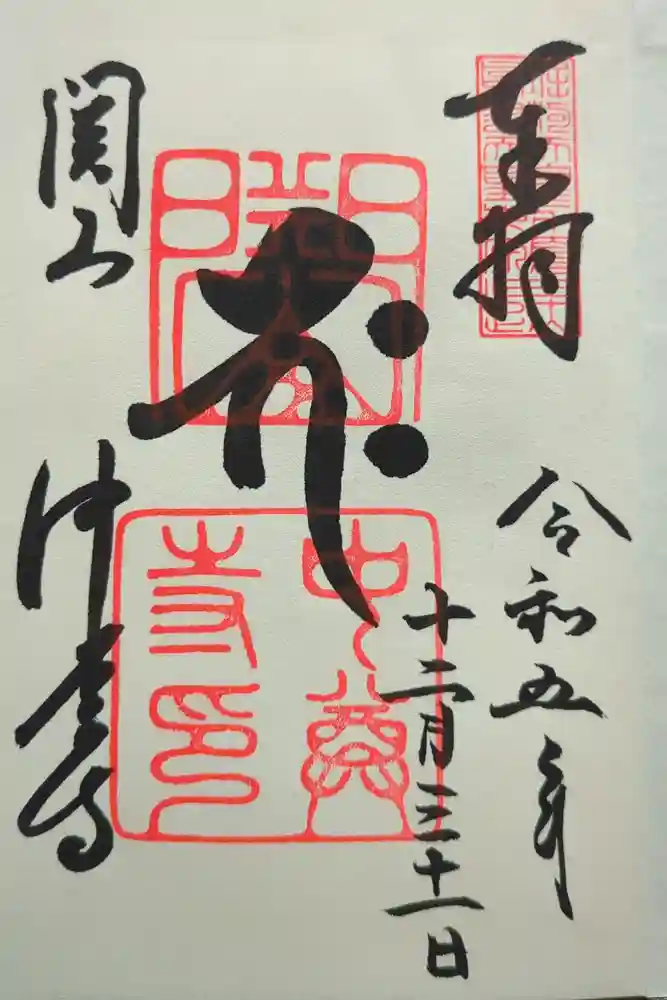 奉拝
令和五年
十二月三十一日
關山
中尊
寺印
関山
中尊寺